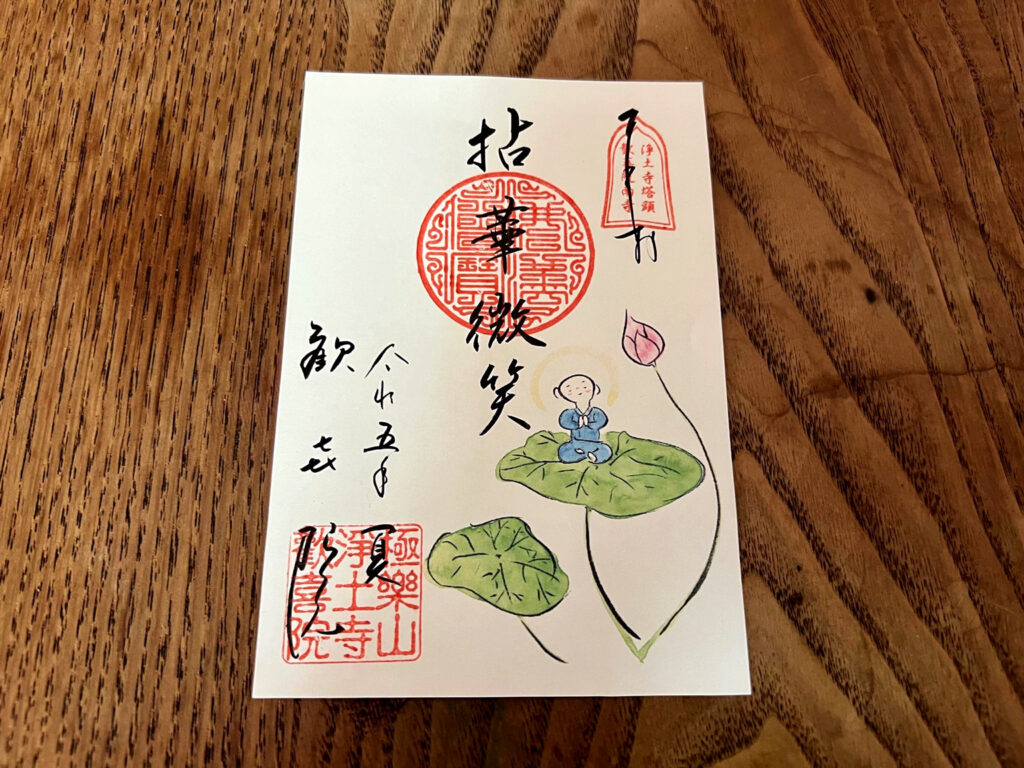 奉拝
淨土寺塔頭
拈華微笑
令和五年 夏
歓㐂院
極樂山
淨土寺
歡喜院